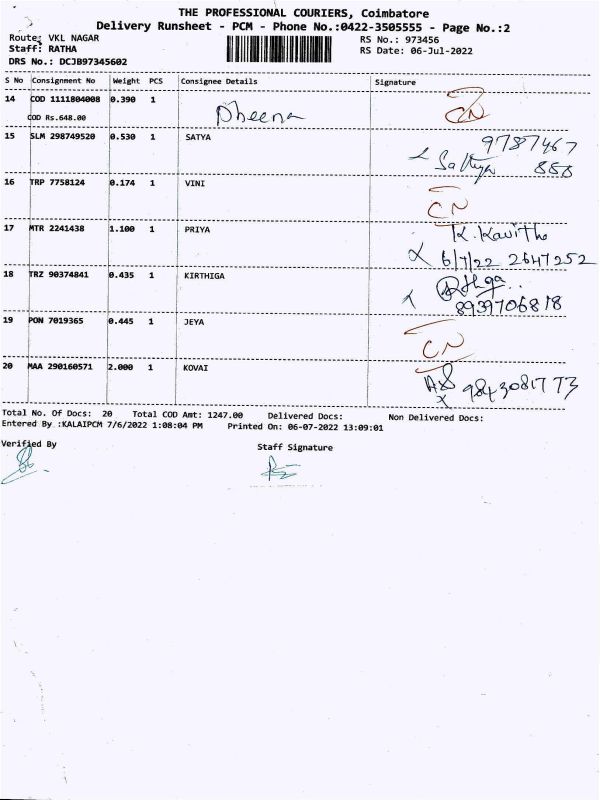 THE PROFESSIONAL COURIERS, Coimbatore
Delivery Runsheet - PCM - Phone No.:0422-3505555 - Page No.:2
Route: VKL NAGAR RS No.: 973456
Staff: RATHA RS Date: 06-Jul-2022
DRS No.: DCJB97345602
S No Consignment No Weight PCS Consignee Details Signature
14 COD 1111804008 0.390 1 Dheena CN
COD Rs.648.00
15 SLM 298749520 0.530 1 SATYA 9787467
Sathya 858
16 TRP 7758124 0.174 1 VINI CN
17 MTR 2241438 1.100 1 PRIYA K. Kavitha
6/7/22 2647252
18 TRZ 90374841 0.435 1 KIRTHIGA
8939706818
19 PON 7019365 0.445 1 JEYA CN
20 MAA 290160571 2.000 1 KOVAI 9843081773
Total No. Of Docs: 20 Total COD Amt: 1247.00 Delivered Docs: Non Delivered Docs:
Entered By :KALAIPCM 7/6/2022 1:08:04 PM Printed On: 06-07-2022 13:09:01
Verified By Staff Signature